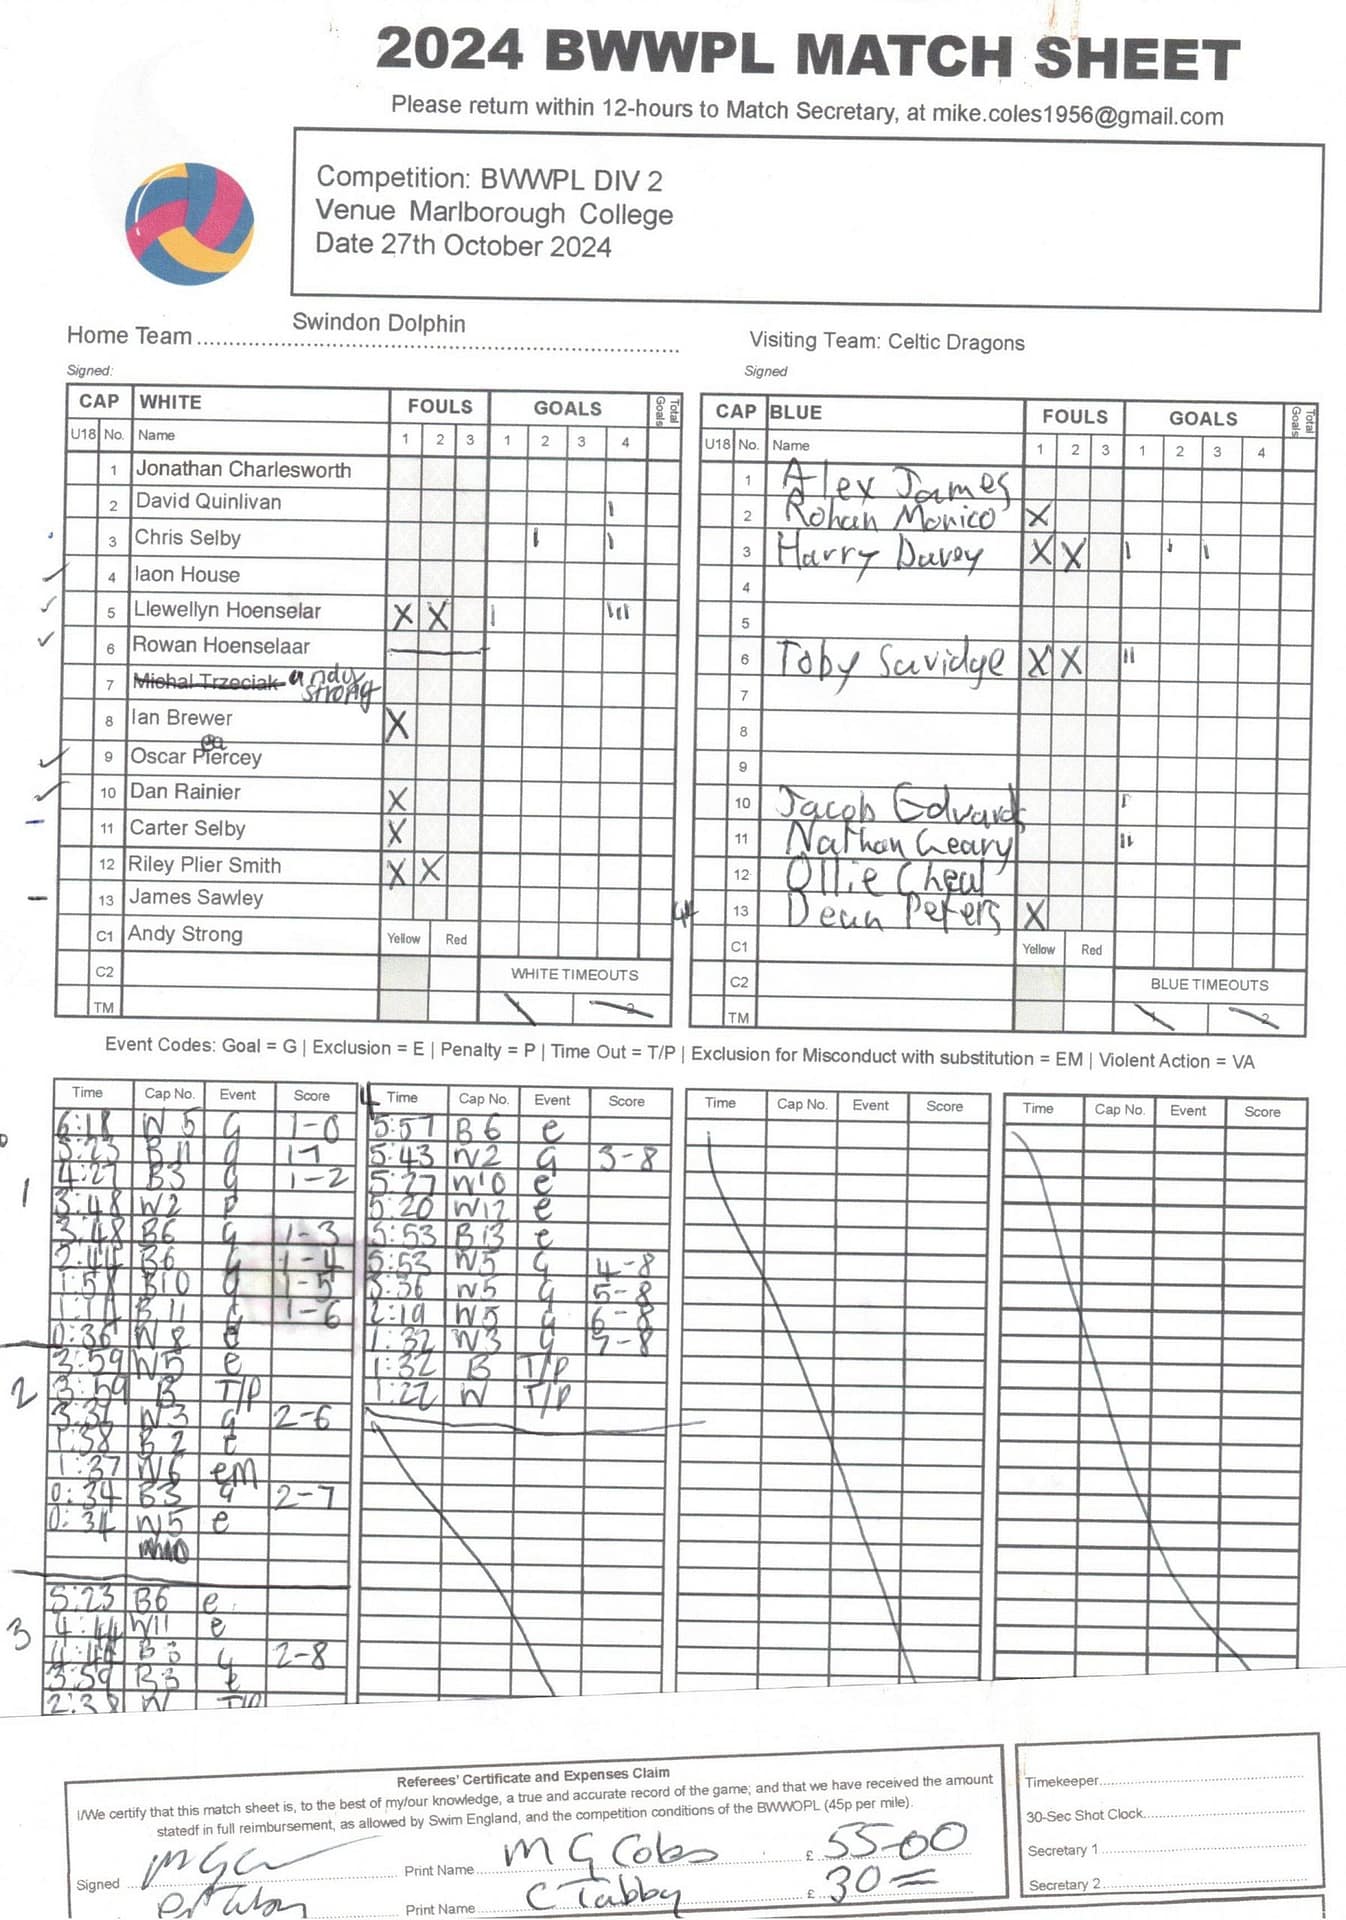 2024 BWWPL MATCH SHEET
Please return within 12-hours to Match Secretary, at mike.coles1956@gmail.com
Competition: BWWPL DIV 2
Venue Marlborough College
Date 27th October 2024
Home Team Swindon Dolphin
Visiting Team: Celtic Dragons
Signed:
Signed
CAP WHITE FOULS GOALS Total Goals
U18 No. Name 1 2 3 1 2 3 4
1 Jonathan Charlesworth
2 David Quinlivan I
3 Chris Selby I I
4 Iaon House
5 Llewellyn Hoenselar X X I III
6 Rowan Hoenselaar
7 Michal Trzeciak andy strong
8 Ian Brewer X
9 Oscar Piercey ea
10 Dan Rainier X
11 Carter Selby X
12 Riley Plier Smith X X
13 James Sawley
C1 Andy Strong Yellow Red
C2 WHITE TIMEOUTS
TM 1 2
CAP BLUE FOULS GOALS Total Goals
U18 No. Name 1 2 3 1 2 3 4
1 Alex James
2 Rohan Monico X
3 Harry Davey X X I I I
4
5
6 Toby Savidge X X II
7
8
9
10 Jacob Edwards I
11 Nathan Geary II
12 Ollie Cheal
13 Dean Peters X
C1 Yellow Red
C2 BLUE TIMEOUTS
TM 1 2
Event Codes: Goal = G | Exclusion = E | Penalty = P | Time Out = T/P | Exclusion for Misconduct with substitution = EM | Violent Action = VA
Time Cap No. Event Score
1
6:18 W 5 G 1-0
5:23 B 11 G 1-1
4:27 B3 G 1-2
3:48 W2 P
3:48 B6 G 1-3
2:44 B6 G 1-4
1:58 B10 G 1-5
1:11 B 11 G 1-6
0:36 W 8 e
2
3:59 W5 e
3:59 B T/P
3:32 W3 G 2-6
1:38 B 2 e
1:37 W6 em
0:34 B3 G 2-7
0:34 W5 e
3
5:23 B6 e
4:44 W11 e
4:44 B3 G 2-8
3:59 B3 e
2:38 W T/P
4 Time Cap No. Event Score
5:57 B 6 e
5:43 W2 G 3-8
5:27 W10 e
5:20 W12 e
5:53 B13 e
5:53 W5 G 4-8
3:36 W5 G 5-8
2:19 W5 G 6-8
1:32 W3 G 7-8
1:32 B T/P
1:22 W T/P
Time Cap No. Event Score
Time Cap No. Event Score
Referees' Certificate and Expenses Claim
I/We certify that this match sheet is, to the best of my/our knowledge, a true and accurate record of the game; and that we have received the amount
statedf in full reimbursement, as allowed by Swim England, and the competition conditions of the BWWOPL (45p per mile).
Signed Print Name M G Coles £ 55-00
Print Name C Tabby £ 30=
Timekeeper
30-Sec Shot Clock
Secretary 1
Secretary 2